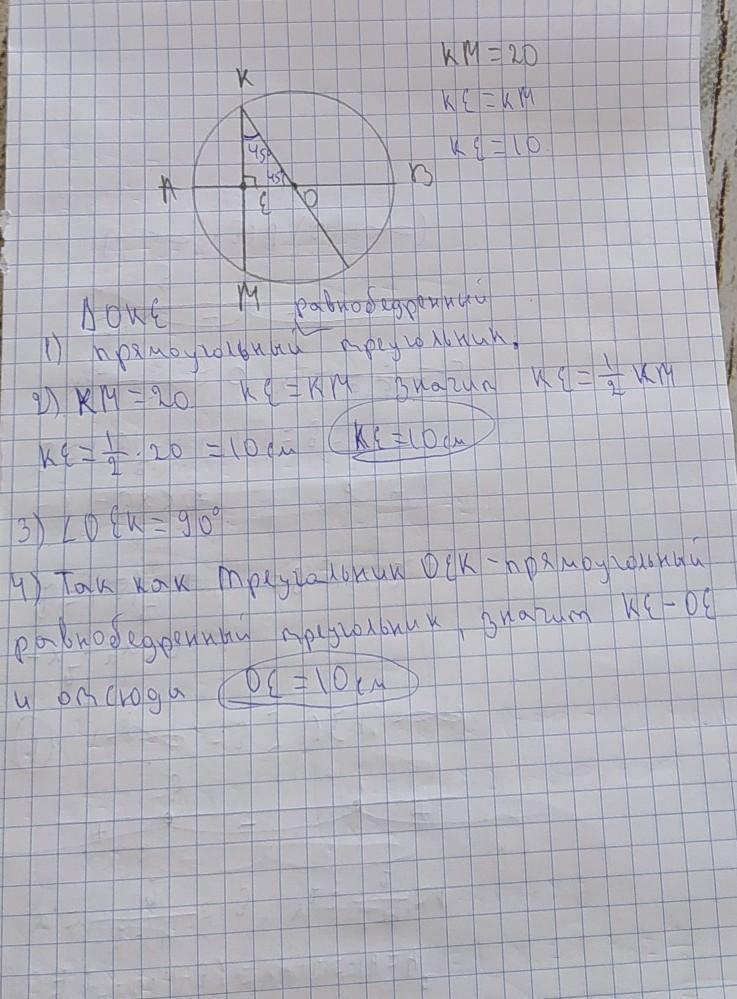 KM=20
KE=KM
KE=10
K
45°
A
45°
E
O
B
M
ΔOKE равнобедренный
1) прямоугольный треугольник.
2) KM=20 KE=KM Значит KE=1/2 KM
KE=1/2·20=10см KE=10см
3) ∠OEK=90°
4) Так как треугальник OEK-прямоугольный
равнобедренный треугольник, значит KE-OE
и отсюда OE=10см